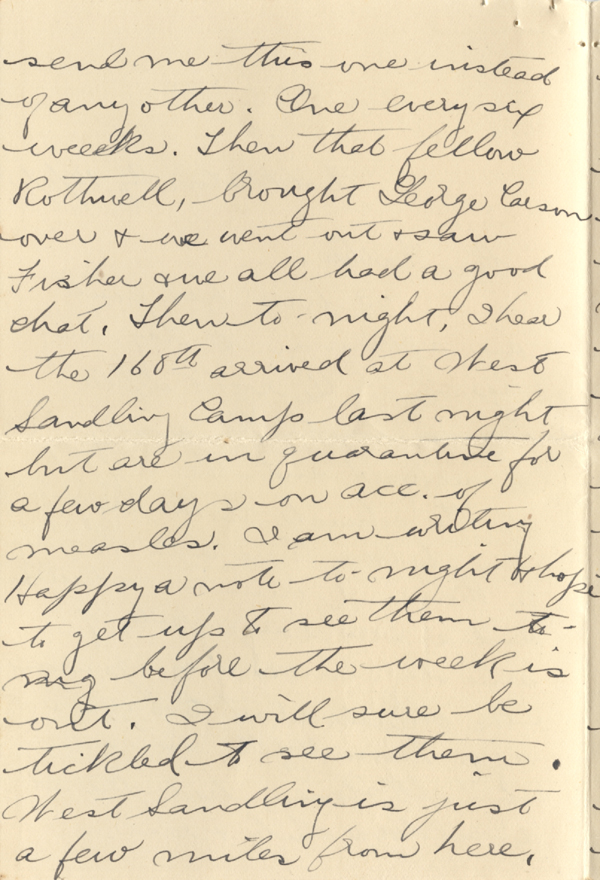 send me this one instead
of any other. One every six
weeks. Then that fellow
Rothwell, brought George Carson
over & we went out & saw
Fisher & we all had a good
chat. Then to-night, I hear
the 160th arrived at West
Sandling Camp last night
but are in quarantine for
a few days on acc. of
measles. I am writing
Happy a note to-night & hope
to get up to see them
before the week is
out. I will sure be
tickled to see them.
West Sandling is just
a few miles from here.